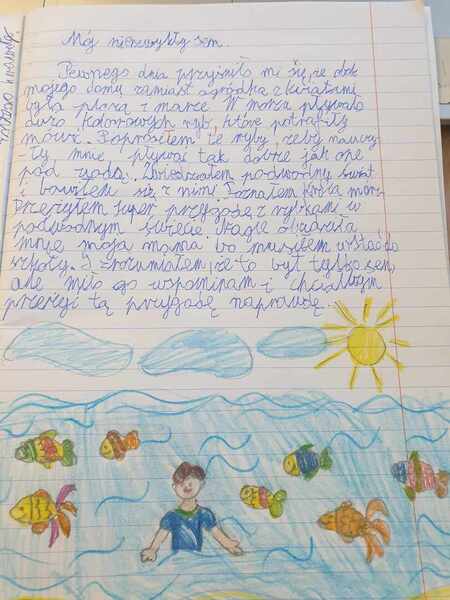 Mój niezwykły sen.
Pewnego dnia przyśniło mi się, że obok
mojego domu zamiast ogródka z kwiatami
była plaża z morze. W morzu pływało
dużo kolorowych ryb, które potrafiły
mówić. Poprosiłem te ryby, żeby nauczy-
ły mnie pływać tak dobrze jak one
pod wodą. Zwiedzałem podwodny świat
i bawiłem się z nimi. Poznałem króla mórz.
Przeżyłem super przygodę z rybkami w
podwodnym świecie. Nagle obudziła
mnie moja mama bo musiałem wstać do
szkoły. I zrozumiałem, że to był tylko sen,
ale miło go wspominam i chciałbym
przeżyć tą przygodę naprawdę.